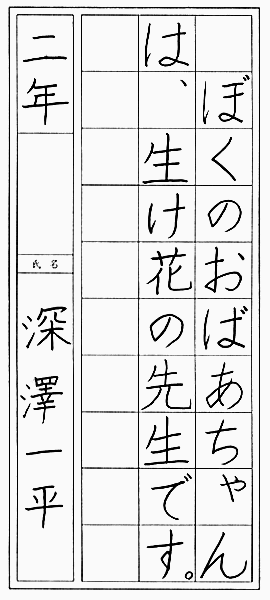 ぼくのおばあちゃん
は、生け花の先生です。
二年
氏名
深澤一平